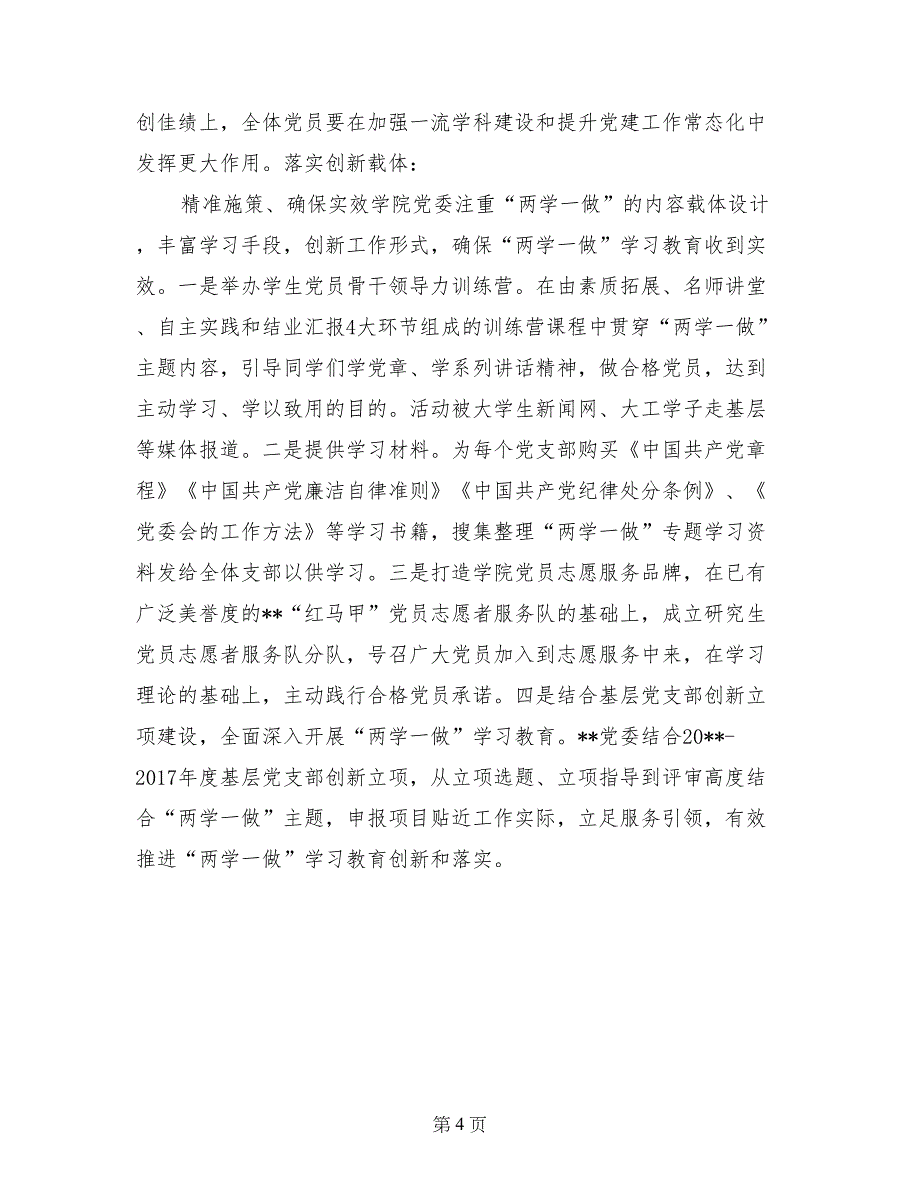 创佳绩上，全体党员要在加强一流学科建设和提升党建工作常态化中
发挥更大作用。落实创新载体：
精准施策、确保实效学院党委注重“两学一做”的内容载体设计
，丰富学习手段，创新工作形式，确保“两学一做”学习教育收到实
效。一是举办学生党员骨干领导力训练营。在由素质拓展、名师讲堂
、自主实践和结业汇报4大环节组成的训练营课程中贯穿“两学一做”
主题内容，引导同学们学党章、学系列讲话精神，做合格党员，达到
主动学习、学以致用的目的。活动被大学生新闻网、大工学子走基层
等媒体报道。二是提供学习材料。为每个党支部购买《中国共产党章
程》《中国共产党廉洁自律准则》《中国共产党纪律处分条例》、《
党委会的工作方法》等学习书籍，搜集整理“两学一做”专题学习资
料发给全体支部以供学习。三是打造学院党员志愿服务品牌，在已有
广泛美誉度的**“红马甲”党员志愿者服务队的基础上，成立研究生
党员志愿者服务队分队，号召广大党员加入到志愿服务中来，在学习
理论的基础上，主动践行合格党员承诺。四是结合基层党支部创新立
项建设，全面深入开展“两学一做”学习教育。**党委结合20**-
2017年度基层党支部创新立项，从立项选题、立项指导到评审高度结
合“两学一做”主题，申报项目贴近工作实际，立足服务引领，有效
推进“两学一做”学习教育创新和落实。
第 4 页